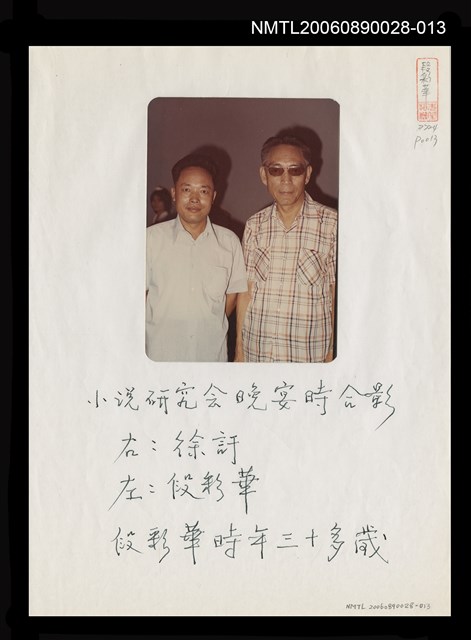 NMTL20060890028-013
段彩華
2204
P0013
小说研究会晚宴時合影
右：徐訏
左：段彩華
段彩華時年三十多歲
NMTL 20060890028-013